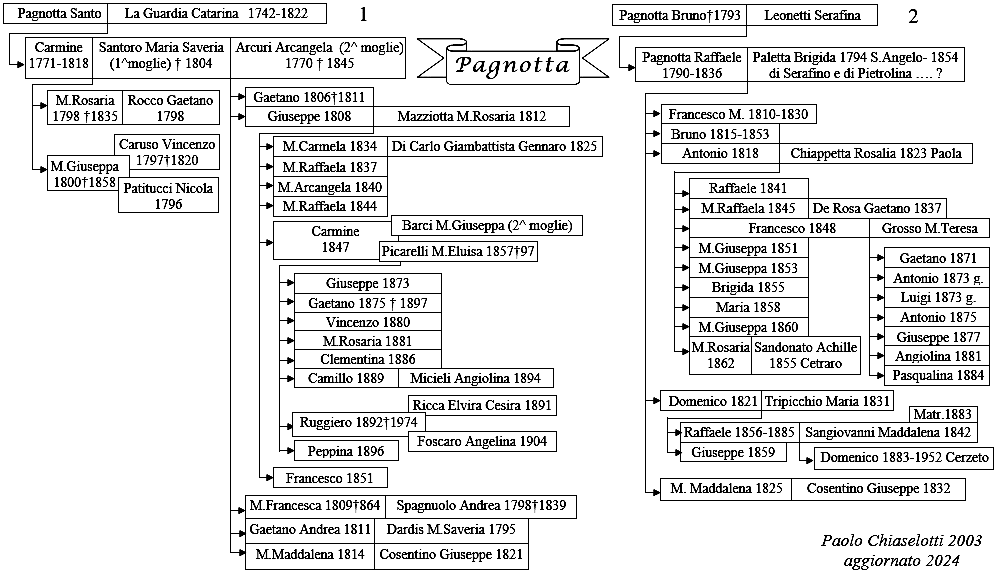 Pagnotta Santo La Guardia Catarina 1742-1822
1
Carmine
1771-1818
Santoro Maria Saveria
(1^moglie) † 1804
Arcuri Arcangela (2^ moglie)
1770 † 1845
M.Rosaria
1798 †1835
Rocco Gaetano
1798
Caruso Vincenzo
1797†1820
M.Giuseppa
1800†1858
Patitucci Nicola
1796
Gaetano 1806†1811
Giuseppe 1808 Mazziotta M.Rosaria 1812
M.Carmela 1834 Di Carlo Giambattista Gennaro 1825
M.Raffaela 1837
M.Arcangela 1840
M.Raffaela 1844
Barci M.Giuseppa (2^ moglie)
Carmine
1847
Picarelli M.Eluisa 1857†97
Giuseppe 1873
Gaetano 1875 † 1897
Vincenzo 1880
M.Rosaria 1881
Clementina 1886
Camillo 1889 Micieli Angiolina 1894
Ricca Elvira Cesira 1891
Ruggiero 1892†1974
Foscaro Angelina 1904
Peppina 1896
Francesco 1851
M.Francesca 1809†864 Spagnuolo Andrea 1798†1839
Gaetano Andrea 1811 Dardis M.Saveria 1795
M.Maddalena 1814 Cosentino Giuseppe 1821
Pagnotta
Pagnotta Bruno†1793 Leonetti Serafina
2
Pagnotta Raffaele
1790-1836
Paletta Brigida 1794 S.Angelo- 1854
di Serafino e di Pietrolina .... ?
Francesco M. 1810-1830
Bruno 1815-1853
Antonio 1818 Chiappetta Rosalia 1823 Paola
Raffaele 1841
M.Raffaela 1845 De Rosa Gaetano 1837
Francesco 1848 Grosso M.Teresa
M.Giuseppa 1851
M.Giuseppa 1853
Brigida 1855
Maria 1858
M.Giuseppa 1860
M.Rosaria
1862
Sandonato Achille
1855 Cetraro
Gaetano 1871
Antonio 1873 g.
Luigi 1873 g.
Antonio 1875
Giuseppe 1877
Angiolina 1881
Pasqualina 1884
Domenico 1821 Tripicchio Maria 1831
Matr.1883
Raffaele 1856-1885 Sangiovanni Maddalena 1842
Giuseppe 1859
Domenico 1883-1952 Cerzeto
M. Maddalena 1825 Cosentino Giuseppe 1832
Paolo Chiaselotti 2003
aggiornato 2024